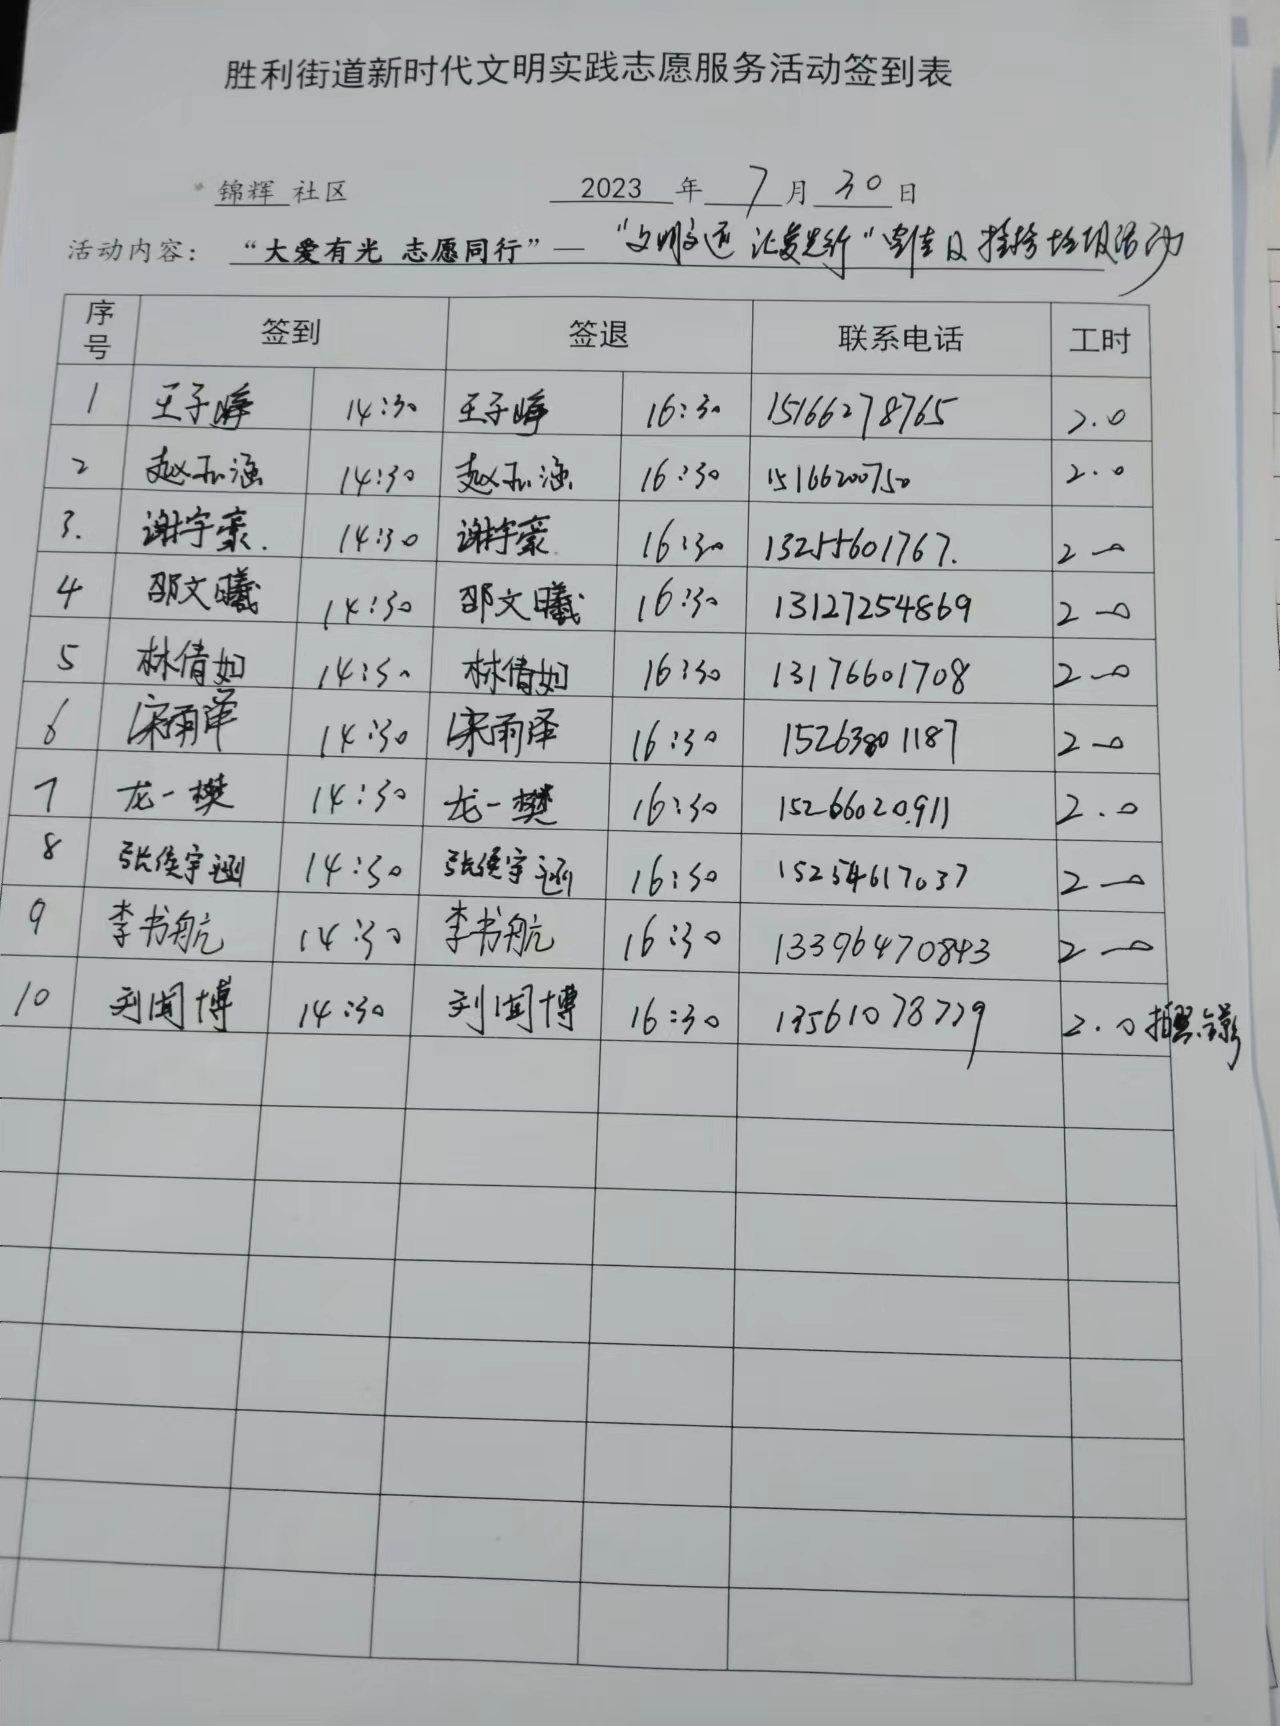 胜利街道新时代文明实践志愿服务活动签到表
锦辉 社区 2023 年 7 月 30 日
活动内容: “大爱有光 志愿同行”— “文明交通 让爱先行”宣传及捡拾垃圾活动
序号 签到 签退 联系电话 工时
1 王子峥 14:30 王子峥 16:30 15166278765 2.0
2 赵 涵 14:30 赵 涵 16:30 15166200750 2.0
3. 谢宇豪. 14:30 谢宇豪. 16:30 13255601767. 2.0
4 邵文曦 14:30 邵文曦 16:30 13127254869 2.0
5 林倩如 14:30 林倩如 16:30 13176601708 2.0
6 宋雨泽 14:30 宋雨泽 16:30 15263801187 2.0
7 龙一樊 14:30 龙一樊 16:30 15266020911 2.0
8 张俊宇涵 14:30 张俊宇涵 16:30 15254617037 2.0
9 李书航 14:30 李书航 16:30 13396470843 2.0
10 刘闻博 14:30 刘闻博 16:30 13561078779 2.0 拍照、录影